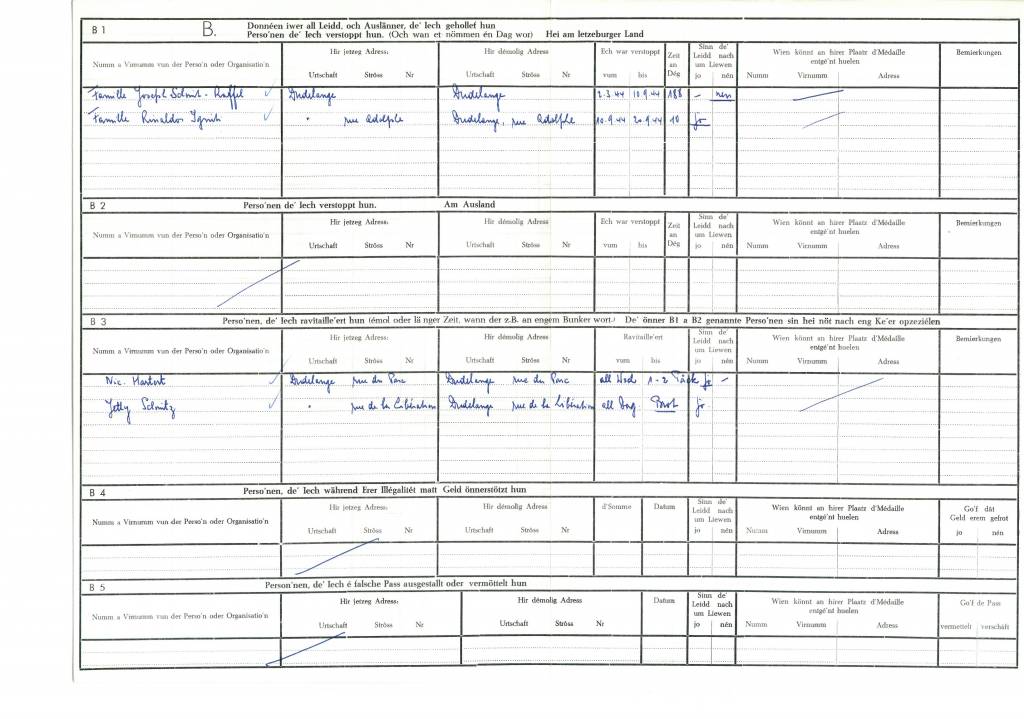 B 1 B. Donnéen iwer all Leidd, och Auslänner, de' Iech gehollef hun
Perso'nen de' Iech verstoppt hun. (Och wan et nömmen én Dag wor) Hei am letzeburger Land
Numm a Virnumm vun der Perso'n oder Organisatio'n
Hir jetzeg Adress:
Urtschaft Ströss Nr
Hir démolig Adress
Urtschaft Ströss Nr
Ech war verstoppt
vum bis
Zeit an Dég
Sinn de' Leidd nach um Liewen
jo nén
Wien könnt an hirer Plaatz d'Médaille entgé'nt huelen
Numm Virnumm Adress
Bemierkungen
Famille Joseph Schmit - Raffel Dudelange Dudelange 2.3.44 10.9.44 188 - nen
Famille Rinaldo " rue Adolphe Dudelange, rue Adolphe 10.9.44 20.9.44 10 jo
B 2 Perso'nen de' Iech verstoppt hun. Am Ausland
Numm a Virnumm vun der Perso'n oder Organisatio'n
Hir jetzeg Adress:
Urtschaft Ströss Nr
Hir démolig Adress
Urtschaft Ströss Nr
Ech war verstoppt
vum bis
Zeit an Dég
Sinn de' Leidd nach um Liewen
jo nén
Wien könnt an hirer Plaatz d'Médaille entgé'nt huelen
Numm Virnumm Adress
Bemierkungen
B 3 Perso'nen, de' Iech ravitaille'ert hun (émol oder länger Zeit, wann der z.B. an engem Bunker wort.) De' önner B1 a B2 genannte Perso'nen sin hei nöt nach eng Ke'er opzeziélen
Numm a Virnumm vun der Perso'n oder Organisatio'n
Hir jetzeg Adress:
Urtschaft Ströss Nr
Hir démolig Adress
Urtschaft Ströss Nr
Ravitaille'ert
vum bis
Sinn de' Leidd nach um Liewen
jo nén
Wien könnt an hirer Plaatz d'Médaille entgé'nt huelen
Numm Virnumm Adress
Bemierkungen
Nic. Hartert Dudelange rue du Parc Dudelange rue du Parc all Woch 1-2 jo -
Jetty Schmitz " rue de la Libération Dudelange rue de la Libération all Dag Brot jo
B 4 Perso'nen, de' Iech während Erer Illégalitét matt Geld önnerstötzt hun
Numm a Virnumm vun der Perso'n oder Organisatio'n
Hir jetzeg Adress:
Urtschaft Ströss Nr
Hir démolig Adress
Urtschaft Ströss Nr
d'Somme
Datum
Sinn de' Leidd nach um Liewen
jo nén
Wien könnt an hirer Plaatz d'Médaille entgé'nt huelen
Numm Virnumm Adress
Go'f dât Geld erem gefrot
jo nén
B 5 Person'nen, de' Iech é falsche Pass ausgestallt oder vermöttelt hun
Numm a Virnumm vun der Perso'n oder Organisatio'n
Hir jetzeg Adress:
Urtschaft Ströss Nr
Hir démolig Adress
Urtschaft Ströss Nr
Datum
Sinn de' Leidd nach um Liewen
jo nén
Wien könnt an hirer Plaatz d'Médaille entgé'nt huelen
Numm Virnumm Adress
Go'f de Pass
vermettelt verschâft